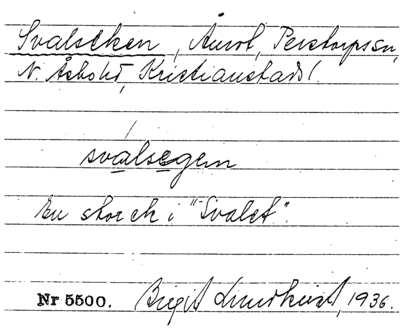 Svalseken, Åvrot, Perstorps sn,
N. Åsbohd, Kristianstads l.
svalsegen
En stor ek i "Svalet".
Nr 5500. Birgit Lundkvist, 1936.